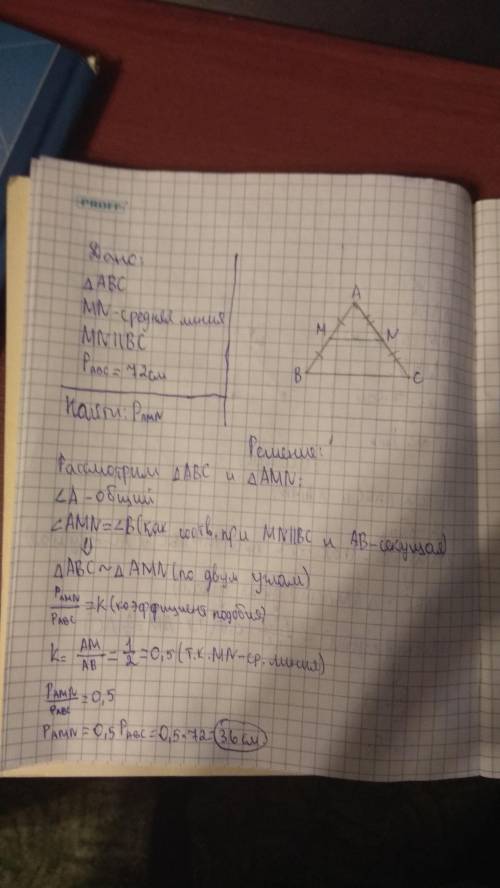 PROFF
Дано:
△ABC
MN-средняя линия
MN||BC
P ABC = 72 см
Найти: P AMN
A
M N
B C
Решение:
Рассмотрим △ABC и △AMN:
∠A - общий
∠AMN=∠B(как соотв. при MN||BC и AB-секущая)
⇓
△ABC~△AMN(по двум углам)
P AMN / P ABC = K (коэффициент подобия)
K = AM / AB = 1/2 = 0,5 (т.к. MN-ср. линия)
P AMN / P ABC = 0,5
P AMN = 0,5 P ABC = 0,5·72=36см